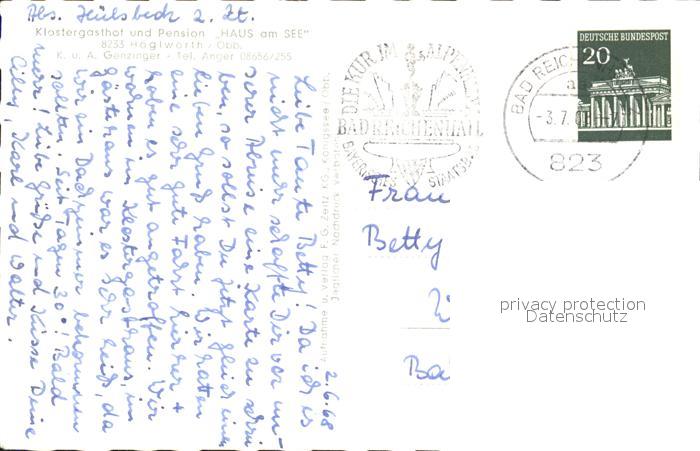 Abs. Heulsbeck z. Zt.
Klostergasthof und Pension „HAUS am SEE"
8233 Höglwörth / Obb.
K. u. A. Genzinger - Tel. Anger 08656/255
2.6.68
Liebe Tante Betty! Da ich es
nicht mehr schaffte Dir vor un-
serer Abreise eine Karte zu schrei
ben, so sollst Du jetzt gleich einen
lieben Gruß haben. Wir hatten
eine sehr gute Fahrt hierher +
haben es gut angetroffen. Wir
wohnen im Klostergasthaus, im
Gästehaus war es sehr heiß, da
wir ein Dachzimmer bekommen
sollten. Seit Tagen 30°! Bald
mehr! Liebe Grüße und Küsse Deine
Cilly, Karl und Walter.
Aufnahme u. Verlag F. G. Zeitz KG., Königssee / Obb.
Jeglicher Nachdruck verboten
DIE KUR IM ALPENKLIMA
BAD REICHENHALL
BAYER. STAATSBAD
DEUTSCHE BUNDESPOST
20
BAD REICHENHALL
a
-3.7.
823
Frau
Betty
Ba
privacy protection
Datenschutz